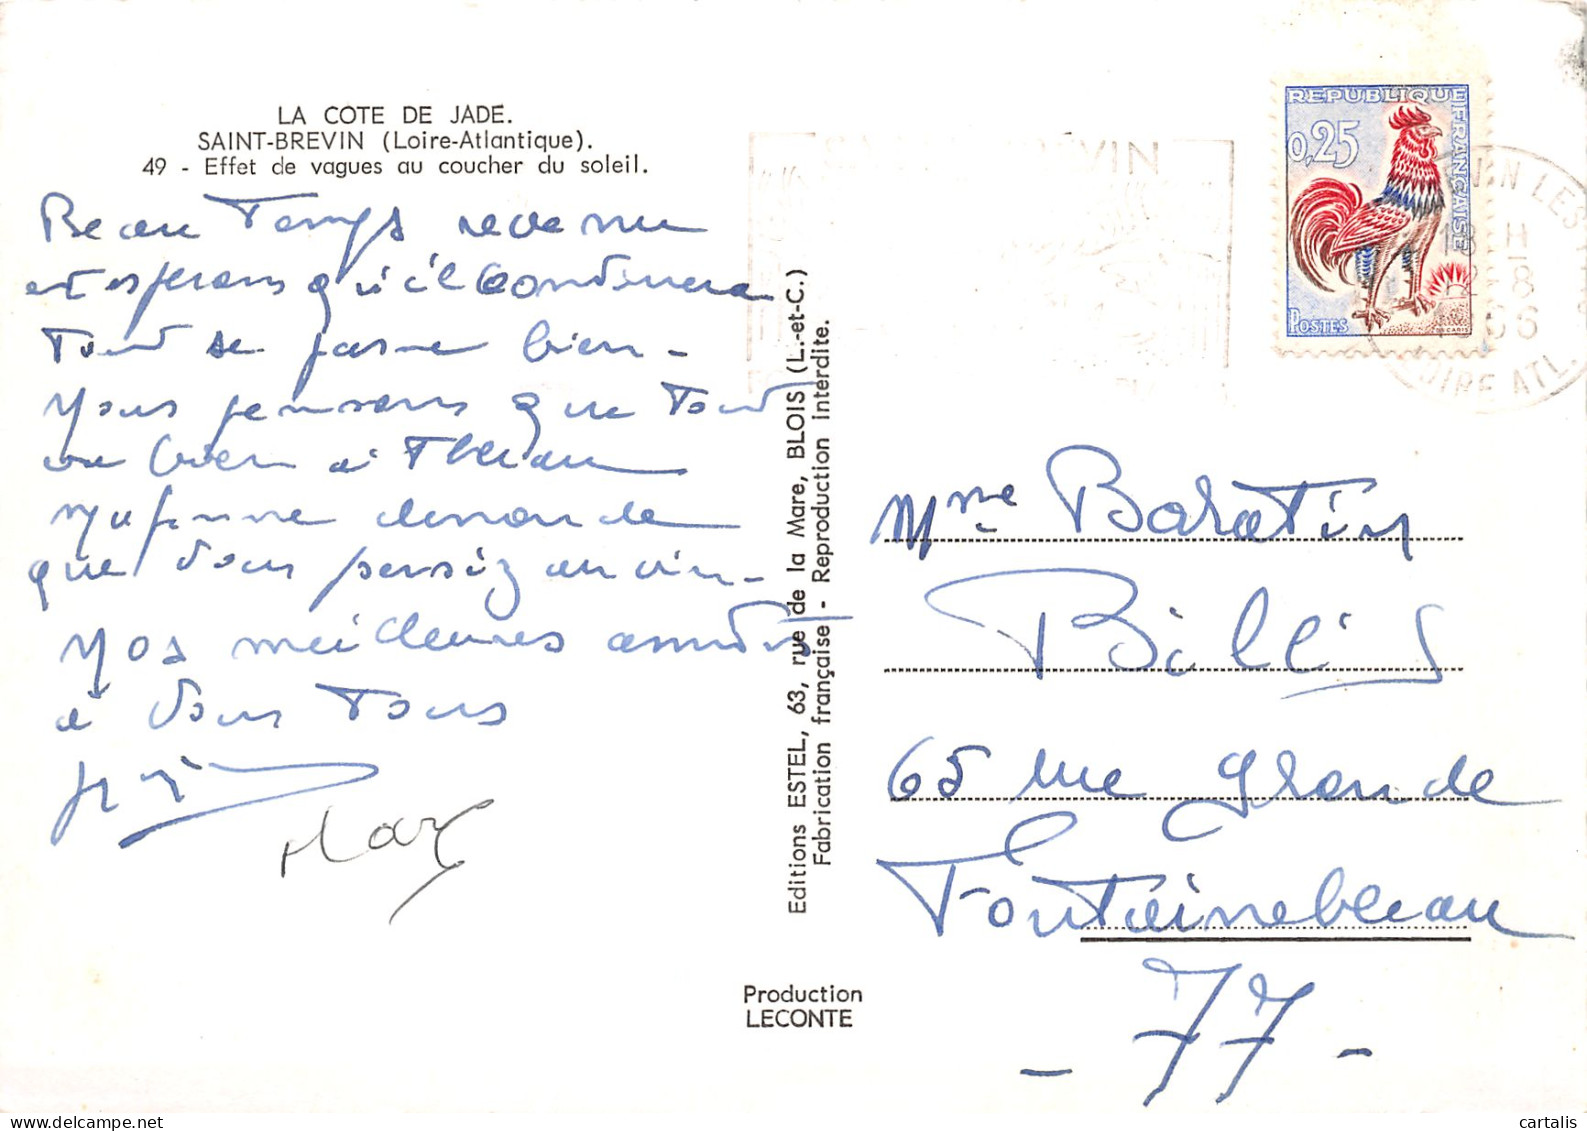 LA COTE DE JADE.
SAINT-BREVIN (Loire-Atlantique).
49 - Effet de vagues au coucher du soleil.
Beau Temps revenu
et esperons qu'il continuera
Tout se passe bien -
Nous pensons que Tout
va bien à
demande
que vous pensiez au vin -
Nos meilleures amitiés
à vous Tous
Editions ESTEL, 63, rue de la Mare, BLOIS (L.-et-C.)
Fabrication française - Reproduction interdite.
Production
LECONTE
REPUBLIQUE FRANÇAISE
0,25
POSTES
VIN
VIN LES
H
-8
LOIRE ATL.
Mme Baratin
65 rue Grande
Fontainebleau
- 77 -
cartalis